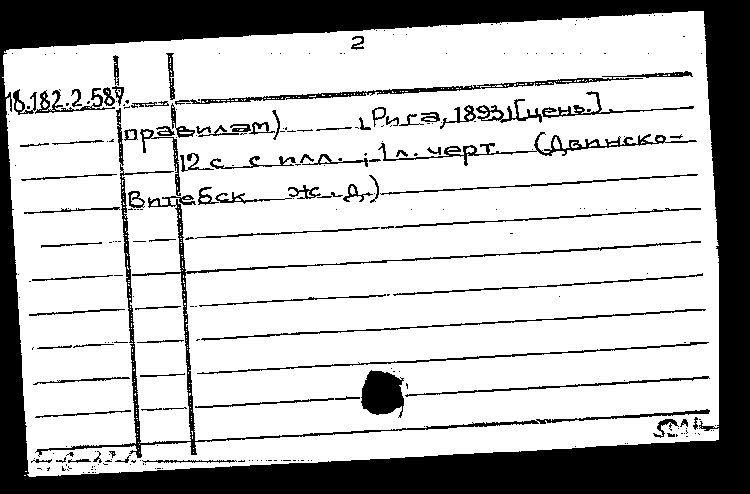 2
18.182.2.587.
правилам). [Рига, 1893] [ценз.].
12 с. с илл.; 1 л. черт. (Двинско-
Витебск ж. д.)